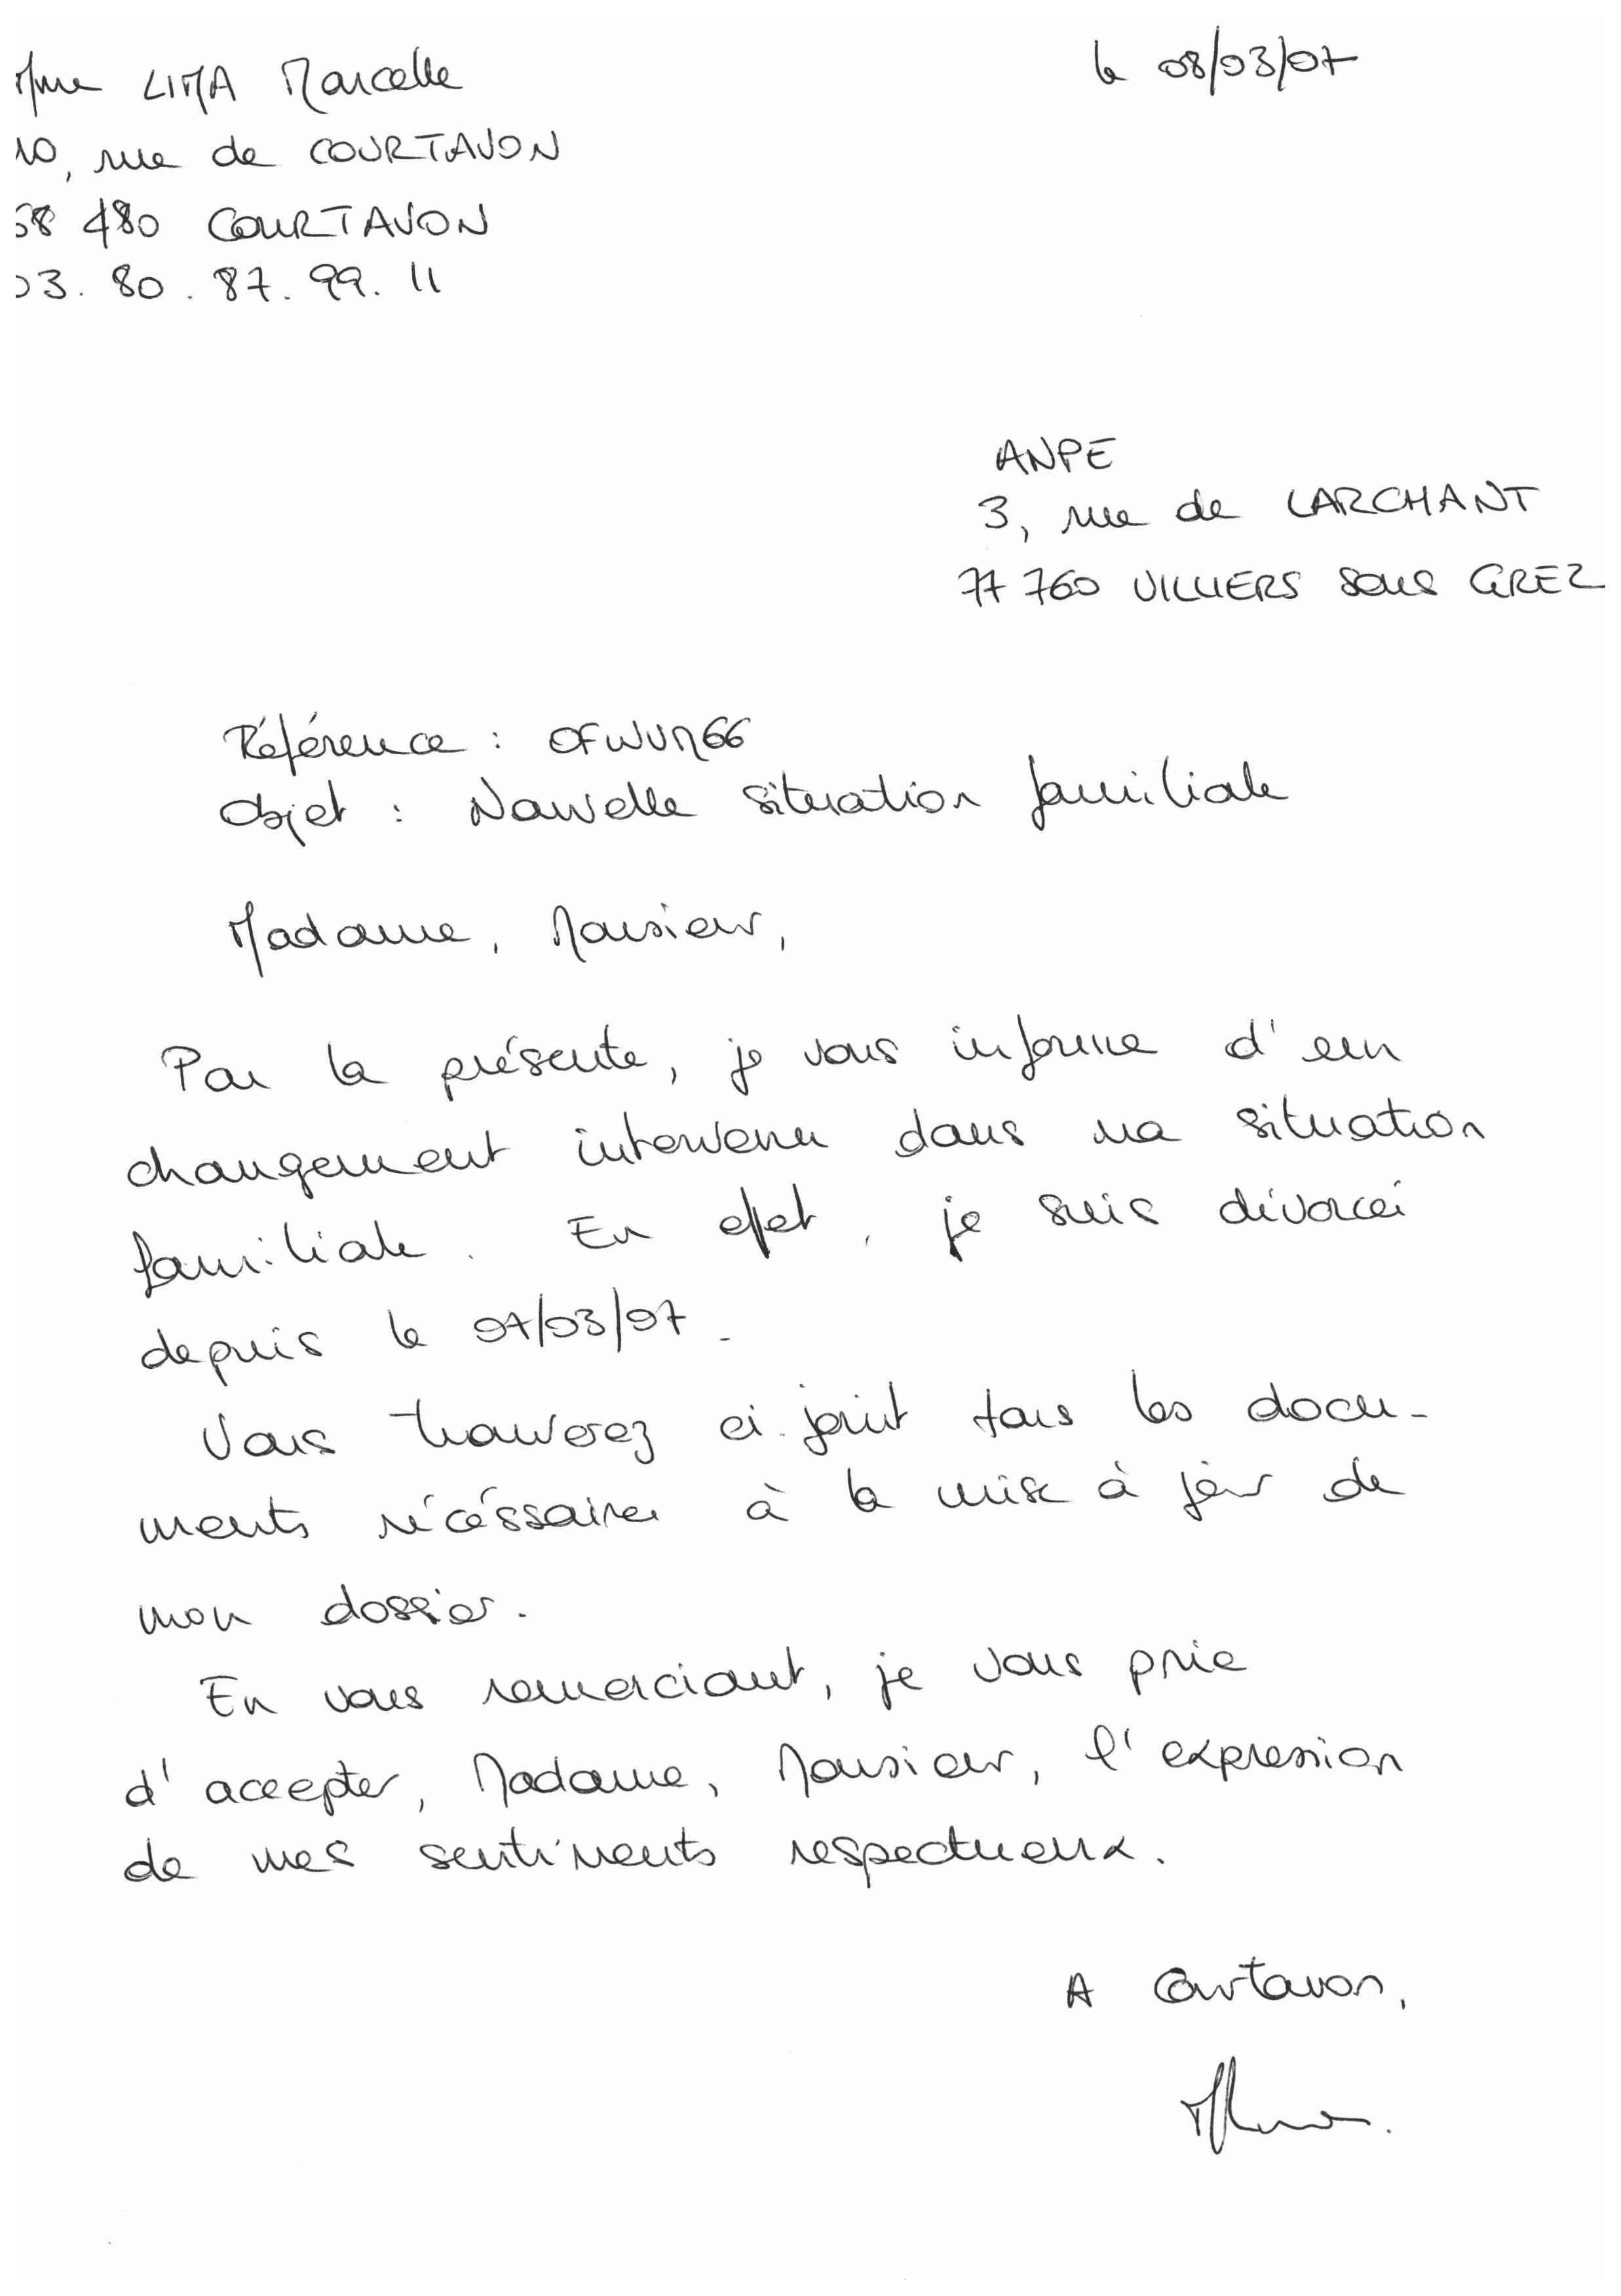 Mme LIMA Marcelle
le 08/03/07
10, rue de COURTAVON
68 480 COURTAVON
03. 80. 87. 99. 11
ANPE
3, rue de LARCHANT
77 760 VILLIERS SOUS GREZ
Référence : OFWUN66
Objet : Nouvelle situation familiale
Madame, Monsieur,
Par la présente, je vous informe d'un
changement intervenu dans ma situation
familiale. En effet, je suis divorcée
depuis le 07/03/07.
Vous trouverez ci-joint tous les docu-
ments nécéssaires à la mise à jour de
mon dossier.
En vous remerciant, je vous prie
d'accepter, Madame, Monsieur, l'expression
de mes sentiments respectueux.
A Courtavon,